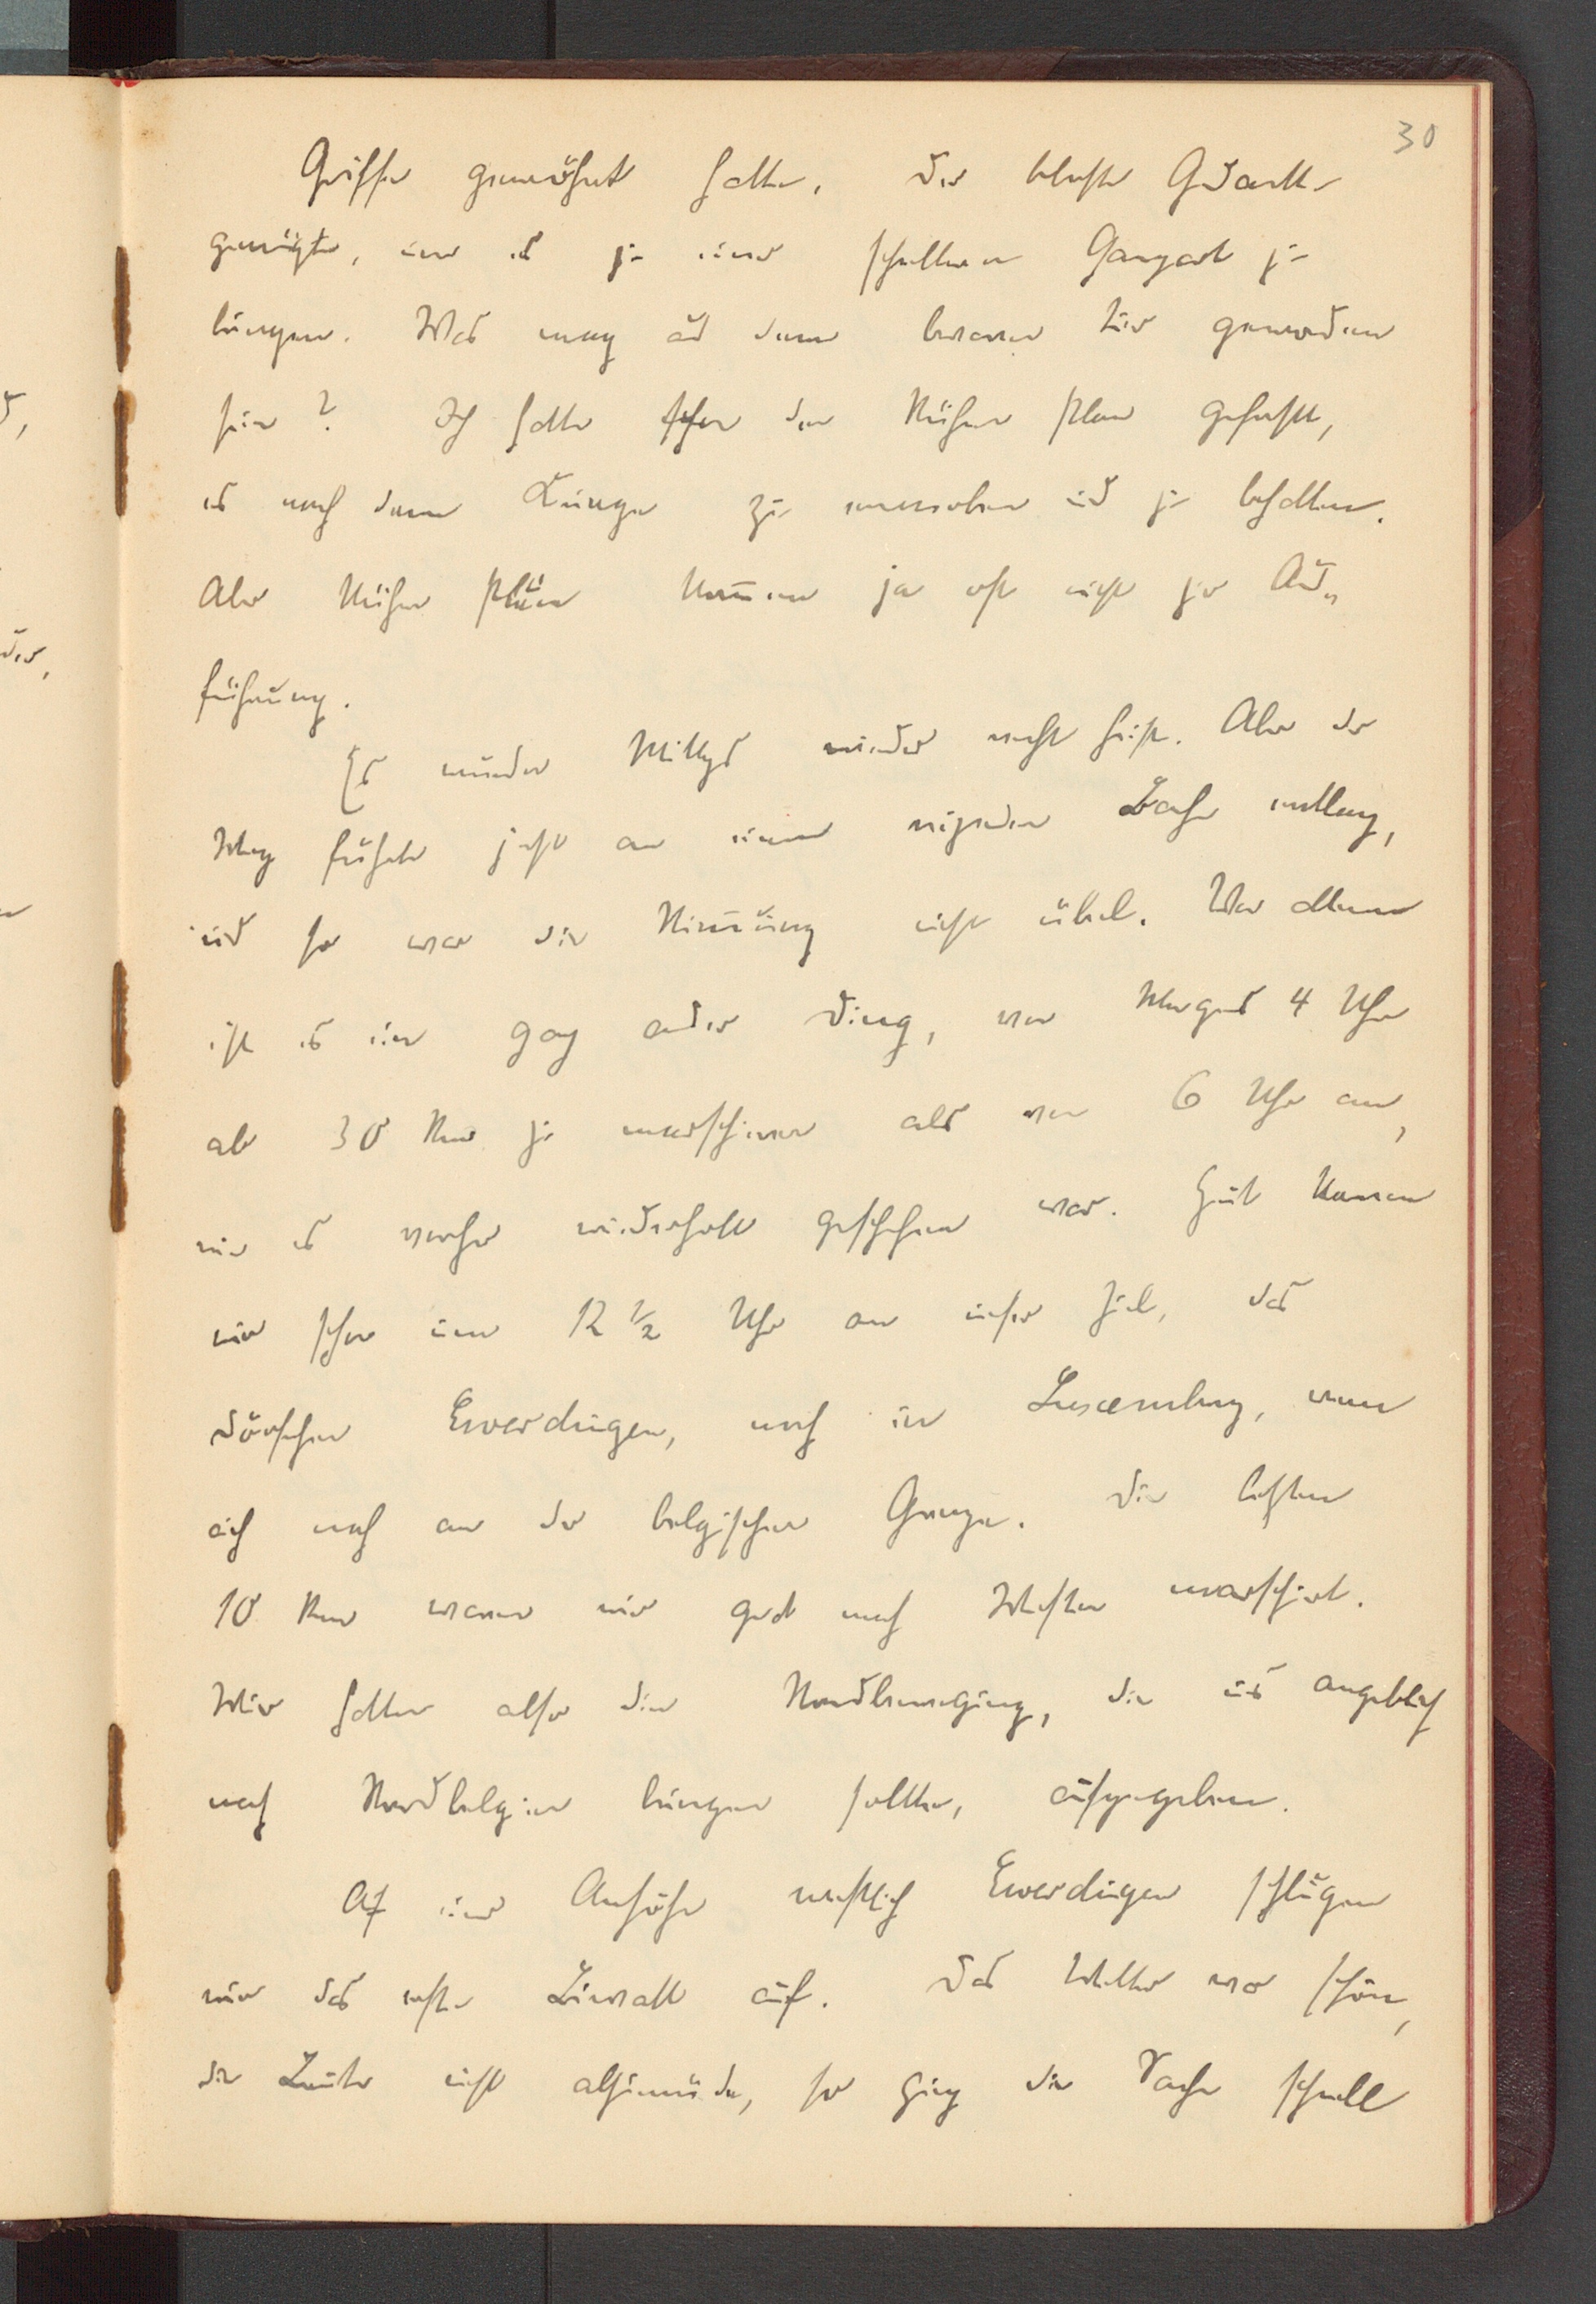 30
Griffe gewöhnt hatte. Der bloße Gedanke
genügte, um es zu einer schnelleren Gangart zu
bringen. Was mag aus dem braven Tier geworden
sein? Ich hatte schon den kühnen Plan gefaßt,
es nach dem Kriege zu erwerben und zu behalten.
Aber kühne Pläne kom̄en ja oft nicht zur Aus„
führung.
Es wurde Mittags wieder recht heiß. Aber der
Weg führte jetzt an einem reizenden Bache entlang,
und so war die Stim̄ung nicht übel. Vor allem
ist es ein ganz ander Ding, von Morgens 4 Uhr
ab 30 Km zu marschieren als von 6 Uhr an,
wie es vorher wiederholt geschehen war. Heut kamen
wir schon um 12 1/2 Uhr an unser Ziel, das
Dörfchen Ewerdingen, noch in Luxemburg, wenn
auch nah an der belgischen Grenze. Die letzten
10 Km waren wir grad nach Westen marschiert.
Wir hatten also die Nordbewegung, die uns angeblich
nach Nordbelgien bringen sollte, aufgegeben.
Auf einer Anhöhe westlich Ewerdingen schlugen
wir das erste Biwak auf. Das Wetter war schön,
die Leute nicht allzumüde, so ging die Sache schnell